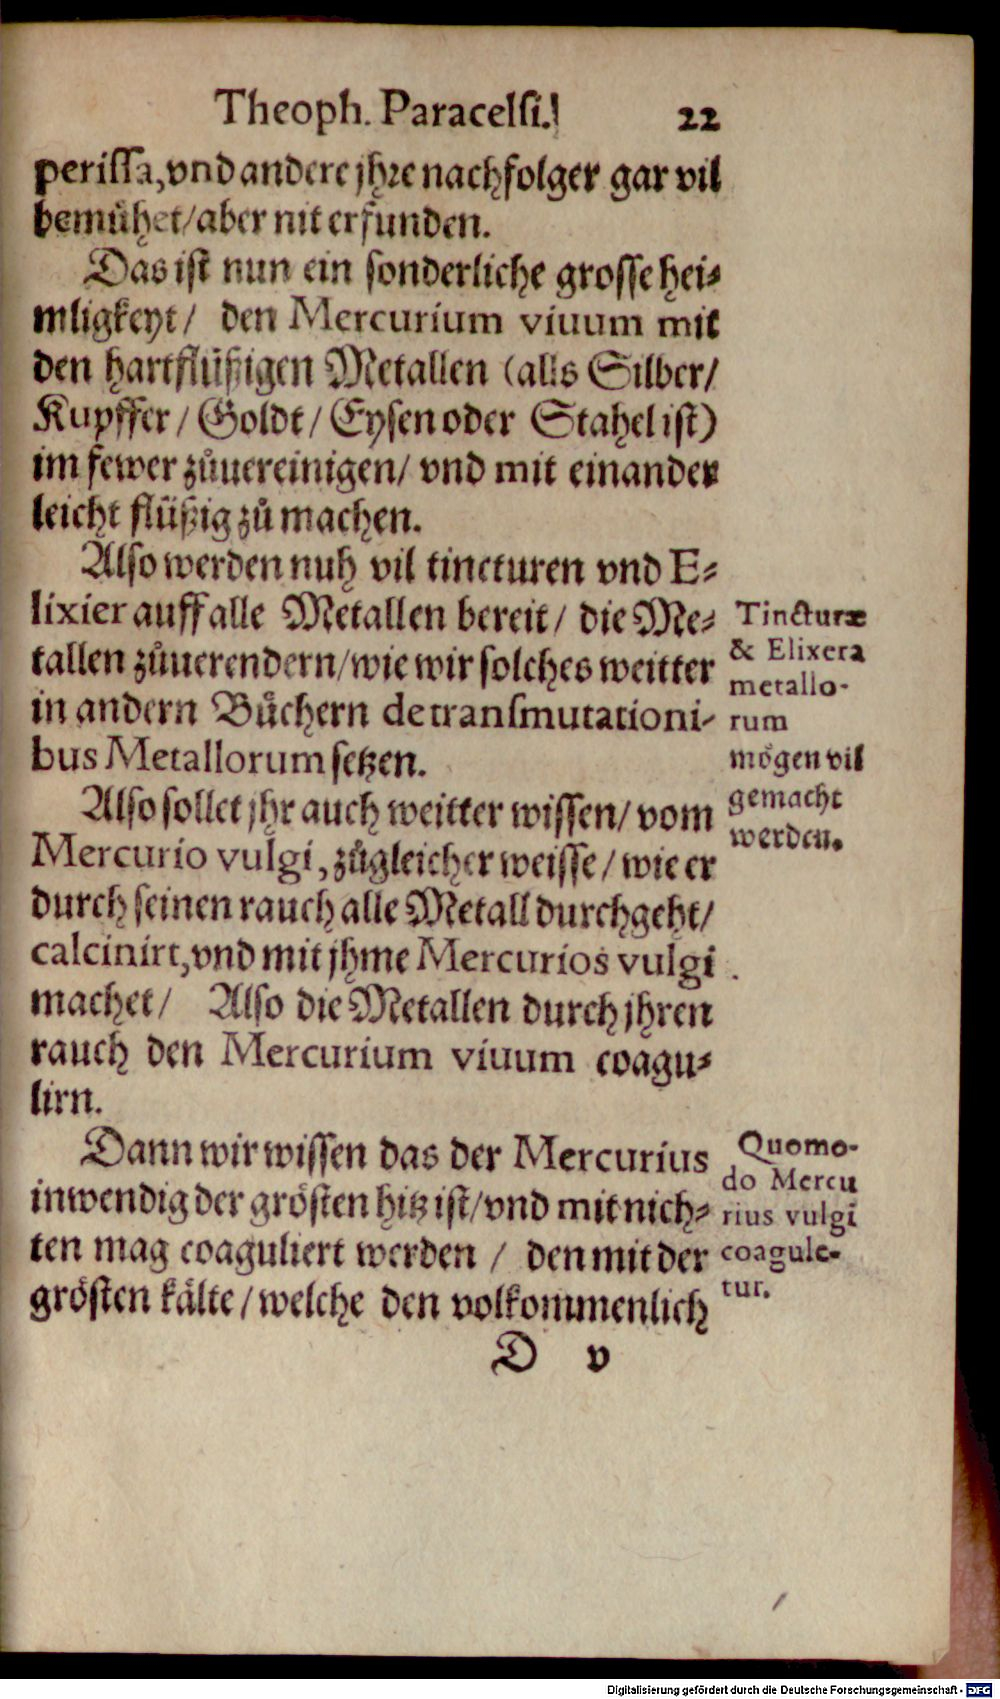 Theoph. Paracelsi. 22
perissa, vnd andere jhre nachfolger gar vil
bemühet/ aber nit erfunden.
Das ist nun ein sonderliche grosse hei-
mligkeyt/ den Mercurium viuum mit
den hartflüßigen Metallen (alls Silber/
Kupffer/ Goldt/ Eysen oder Stahel ist)
im fewer zůuereinigen/ vnd mit einander
leicht flüßig zů machen.
Also werden nuh vil tincturen vnd E-
lixier auff alle Metallen bereit/ die Me-
tallen zůuerendern/ wie wir solches weitter
in andern Bůchern de transmutationi-
bus Metallorum setzen.
Tincturæ
& Elixera
metallo-
rum
mögen vil
gemacht
werden.
Also sollet jhr auch weitter wissen/ vom
Mercurio vulgi, zůgleicher weisse/ wie er
durch seinen rauch alle Metall durchgeht/
calcinirt, vnd mit jhme Mercurios vulgi
machet/ Also die Metallen durch jhren
rauch den Mercurium viuum coagu-
lirn.
Dann wir wissen das der Mercurius
inwendig der grösten hitz ist/ vnd mit nich-
ten mag coaguliert werden / den mit der
grösten kälte/ welche den volkommenlich
Quomo-
do Mercu
rius vulgi
coagule-
tur.
D v
Digitalisierung gefördert durch die Deutsche Forschungsgemeinschaft - DFG